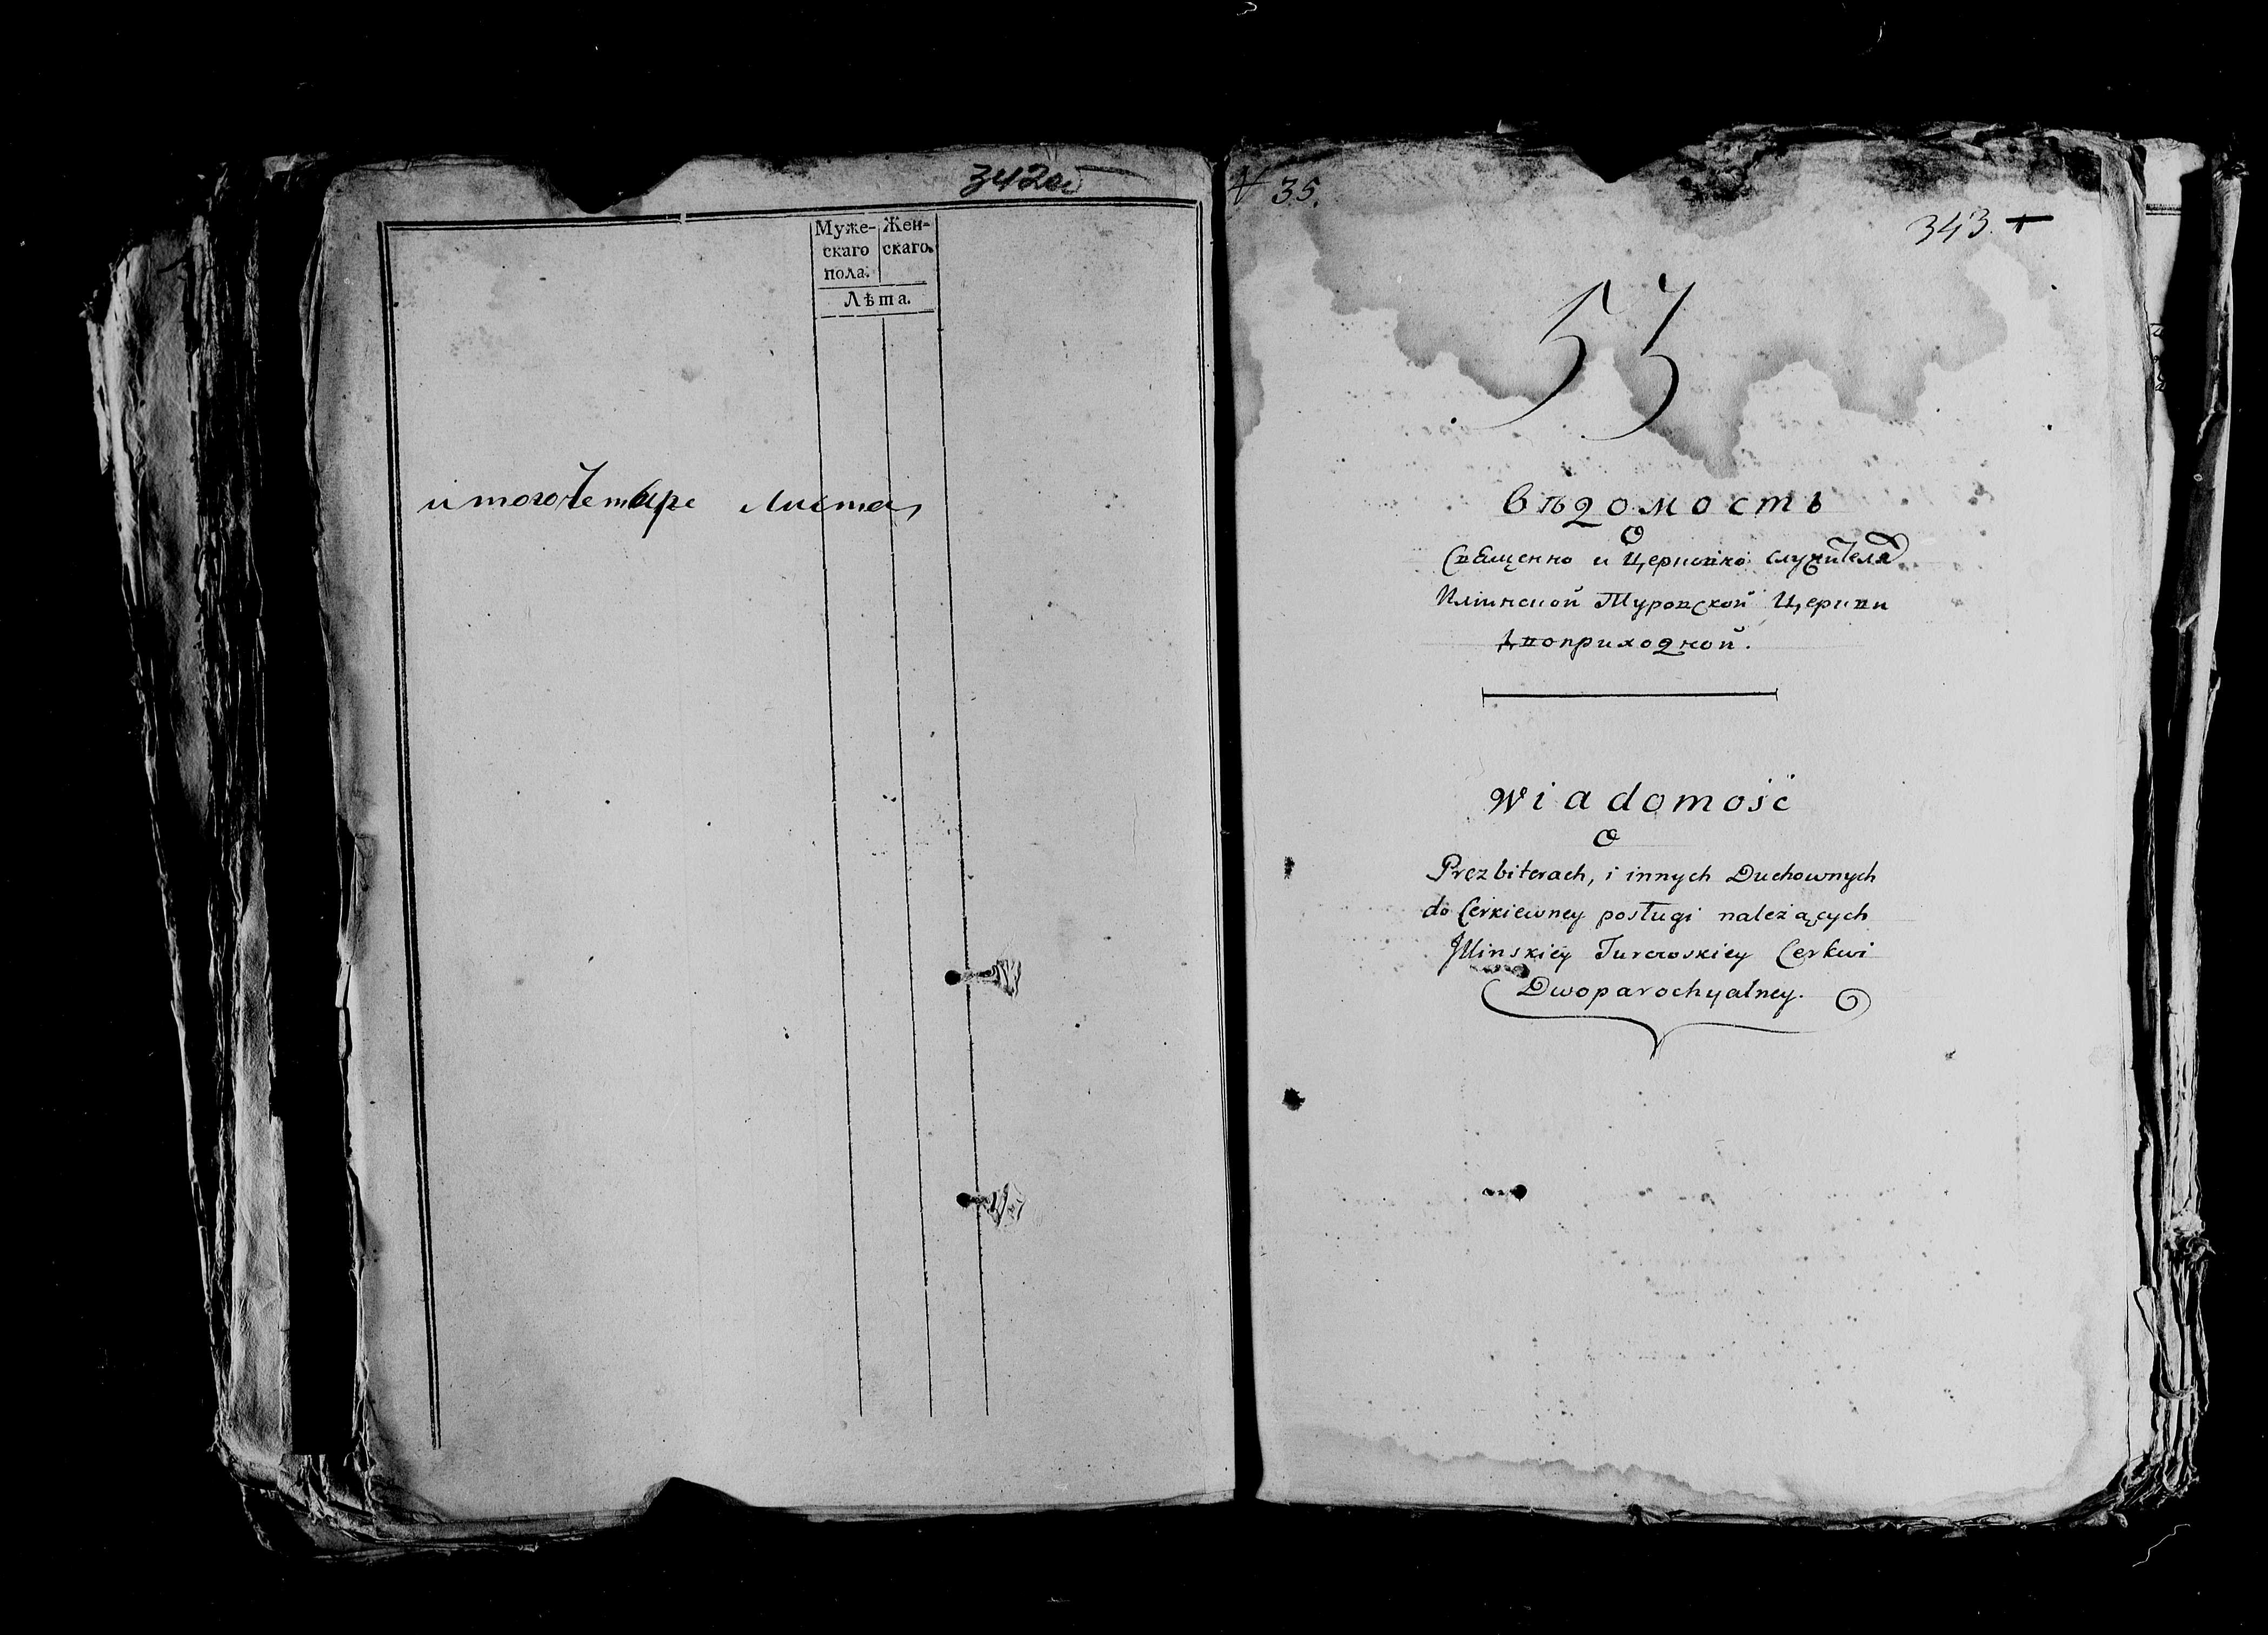 342об
Муже- Жен-
скаго скаго.
пола.
Лѣта.
итого четыре листа
№ 35.
343.
53
Вѣдомость
О
Священно и Церковно служителя
Илiинской Туровской Церкви
Двоприходной.
Wiadomość
O
Prezbiterach, i innych Duchownych
do Cerkiewney posługi należących
Jllinskiey Turowskiey Cerkwi
Dwoparochyalney.